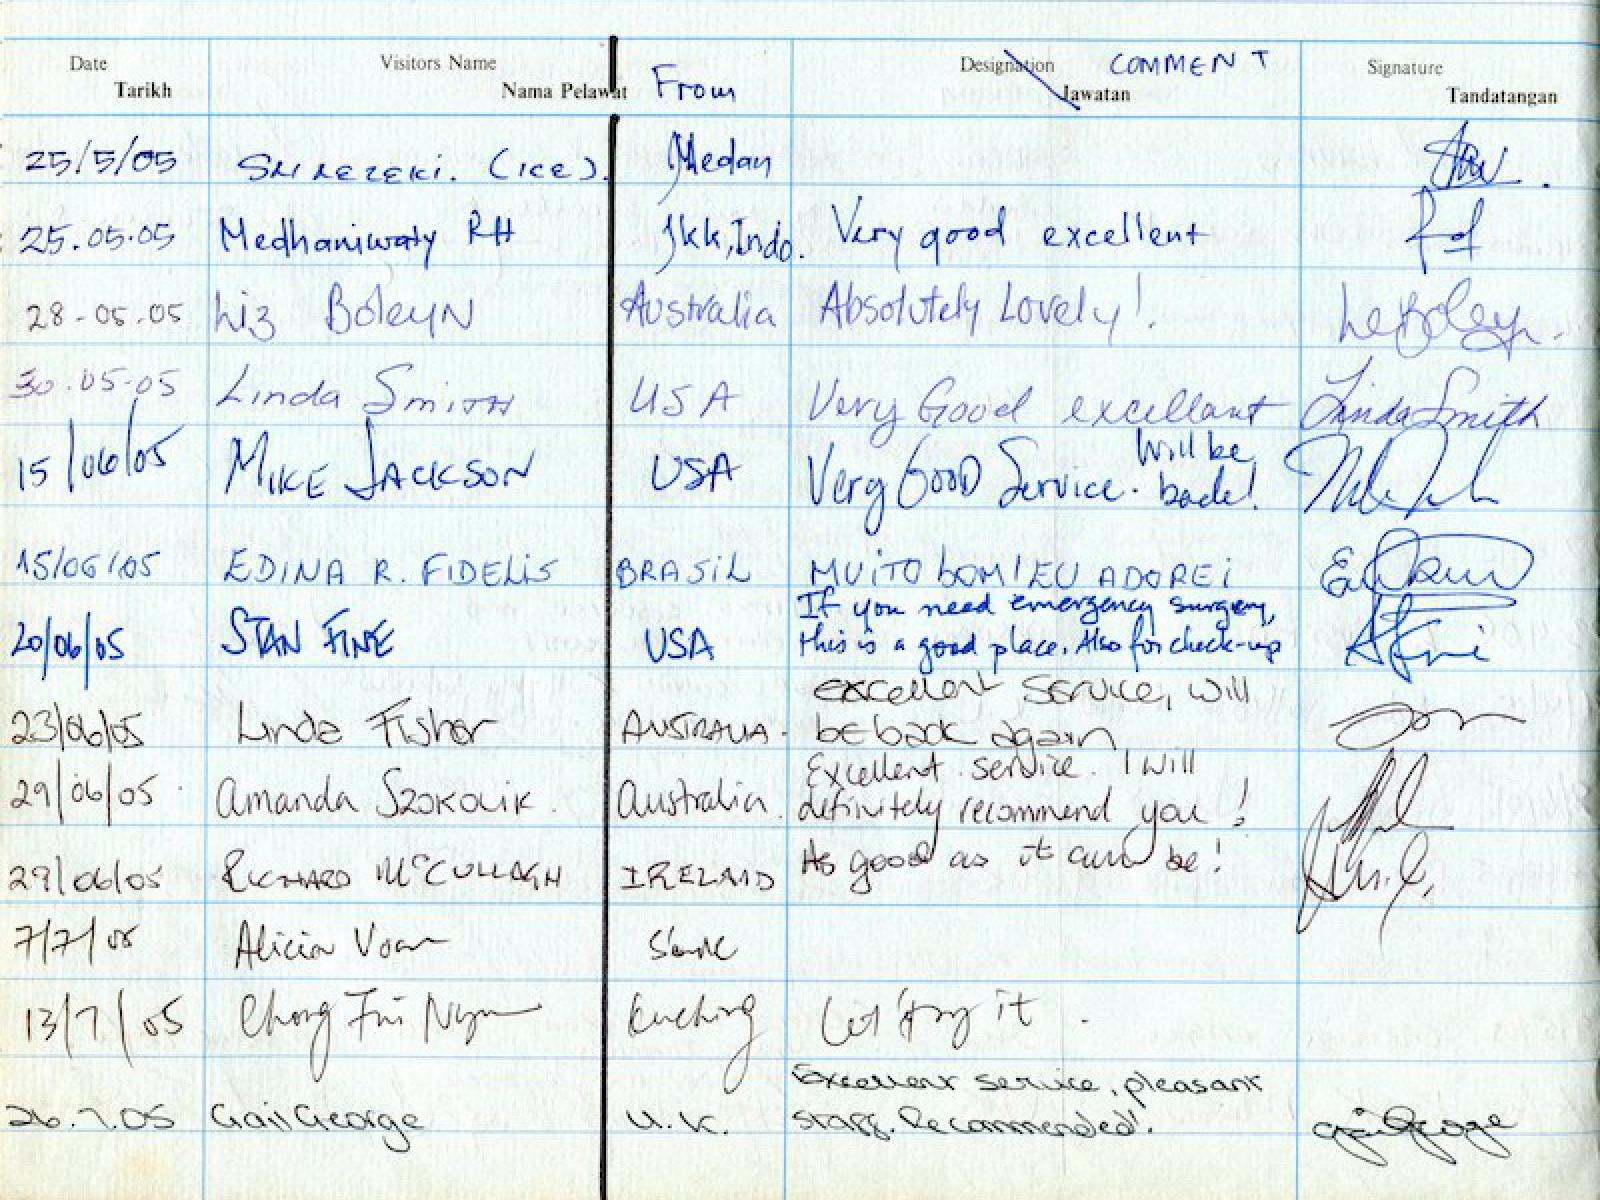 Date Visitors Name Designation COMMENT Signature
Tarikh Nama Pelawat From Jawatan Tandatangan
25/5/05 SRI REZEKI. (ICE). Medan
25.05.05 Medhaniwaty RH Jkk, Indo. Very good excellent
28-05-05 Liz Boleyn Australia Absolutely Lovely!
30.05.05 Linda Smith USA Very Good excellant Linda Smith
15/06/05 MIKE JACKSON USA Very Good Service. Will be back!
15/06/05 EDINA R. FIDELIS BRASIL MUITO BOM! EU ADOREI
If you need emergency surgery,
20/06/05 STAN FINE USA this is a good place. Also for check-up
excellent service, will
23/06/05 Linda Fisher AUSTRALIA. be back again
Excellent service. I will
29/06/05 Amanda Szokolik. Australia. definitely recommend you!
As good as it can be!
29/06/05 RICHARD McCULLAGH IRELAND
7/7/05 Alicia
13/7/05 Chong Kuching
Excellent service, pleasant
26.7.05 Gail George U.K. staff. Recommended!